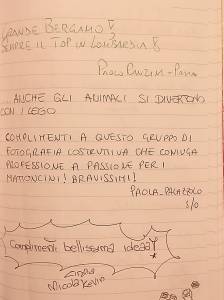 GRANDE BERGAMO!
SEMPRE IL TOP IN LOMBARDIA!
PAOLO
...ANCHE GLI ANIMALI SI DIVERTONO
CON I LEGO
COMPLIMENTI A QUESTO GRUPPO DI
FOTOGRAFIA COSTRUTTIVA CHE CONIUGA
PROFESSIONE A PASSIONE PER I
MATTONCINI! BRAVISSIMI!
PAOLA - PALAZZOLO
S/O
Complimenti bellissima idea!
Nicola Kevin